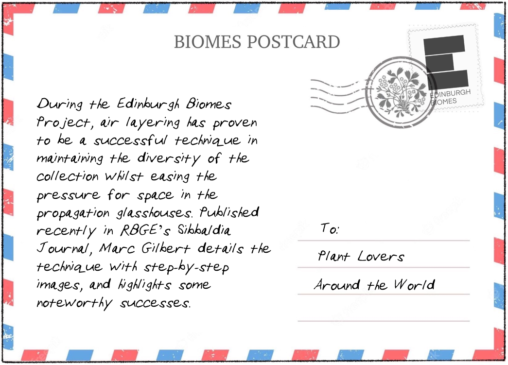 BIOMES POSTCARD
EDINBURGH
BIOMES
During the Edinburgh Biomes
Project, air layering has proven
to be a successful technique in
maintaining the diversity of the
collection whilst easing the
pressure for space in the
propagation glasshouses. Published
recently in RBGE's Sibbaldia
Journal, Marc Gilbert details the
technique with step-by-step
images, and highlights some
noteworthy successes.
To:
Plant Lovers
Around the World